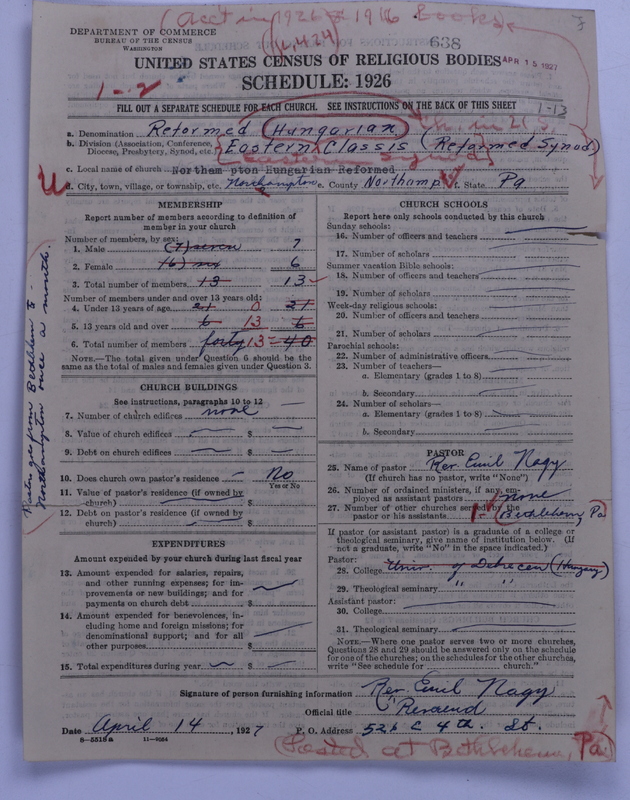 (acct in 1926 & 1916 Books
7
(4424)
DEPARTMENT OF COMMERCE
BUREAU OF THE CENSUS
WASHINGTON
638
UNITED STATES CENSUS OF RELIGIOUS BODIES
APR 15 1927
SCHEDULE: 1926
1-2
FILL OUT A SEPARATE SCHEDULE FOR EACH CHURCH. SEE INSTRUCTIONS ON THE BACK OF THIS SHEET
1-13
a. Denomination Reformed Hungarian ch. in U S
b. Division (Association, Conference, Diocese, Presbytery, Synod, etc.) Eastern Classis (Reformed Synod)
Eastern Synod
c. Local name of church Northampton Hungarian Reformed
d. City, town, village, or township, etc. Northampton e. County Northamp f. State Pa
MEMBERSHIP
Report number of members according to definition of
member in your church
Number of members, by sex:
1. Male (7) seven 7
2. Female (6) six 6
3. Total number of members 13 13
Number of members under and over 13 years old:
4. Under 13 years of age 21 0 21
5. 13 years old and over 6 13 6
6. Total number of members forty 13 = 40
NOTE.—The total given under Question 6 should be the
same as the total of males and females given under Question 3.
Pastor goes from Bethlehem to
Northampton once a month.
CHURCH BUILDINGS
See instructions, paragraphs 10 to 12
7. Number of church edifices none
8. Value of church edifices $
9. Debt on church edifices $
10. Does church own pastor's residence No
Yes or No
11. Value of pastor's residence (if owned by
church) $
12. Debt on pastor's residence (if owned by
church) $
EXPENDITURES
Amount expended by your church during last fiscal year
13. Amount expended for salaries, repairs,
and other running expenses; for im-
provements or new buildings; and for
payments on church debt $
14. Amount expended for benevolences, in-
cluding home and foreign missions; for
denominational support; and for all
other purposes $
15. Total expenditures during year $
CHURCH SCHOOLS
Report here only schools conducted by this church
Sunday schools:
16. Number of officers and teachers
17. Number of scholars
Summer vacation Bible schools:
18. Number of officers and teachers
19. Number of scholars
Week-day religious schools:
20. Number of officers and teachers
21. Number of scholars
Parochial schools:
22. Number of administrative officers
23. Number of teachers—
a. Elementary (grades 1 to 8)
b. Secondary
24. Number of scholars—
a. Elementary (grades 1 to 8)
b. Secondary
PASTOR
25. Name of pastor Rev. Emil Nagy
(If church has no pastor, write "None")
26. Number of ordained ministers, if any, em-
ployed as assistant pastors none
27. Number of other churches served by the
pastor or his assistants 1 - (Bethlehem, Pa)
If pastor (or assistant pastor) is a graduate of a college or
theological seminary, give name of institution below. (If
not a graduate, write "No" in the space indicated.)
Pastor:
28. College Univ. of Debrecen (Hungary)
29. Theological seminary " " "
Assistant pastor:
30. College
31. Theological seminary
NOTE.—Where one pastor serves two or more churches,
Questions 28 and 29 should be answered only on the schedule
for one of the churches; on the schedules for the other churches,
write "See schedule for church."
Signature of person furnishing information Rev. Emil Nagy
Official title Reverend
Date April 14, 1927 P. O. Address 526 E 4th. St.
8-5518a 11-9024
(Located at Bethlehem, Pa.)